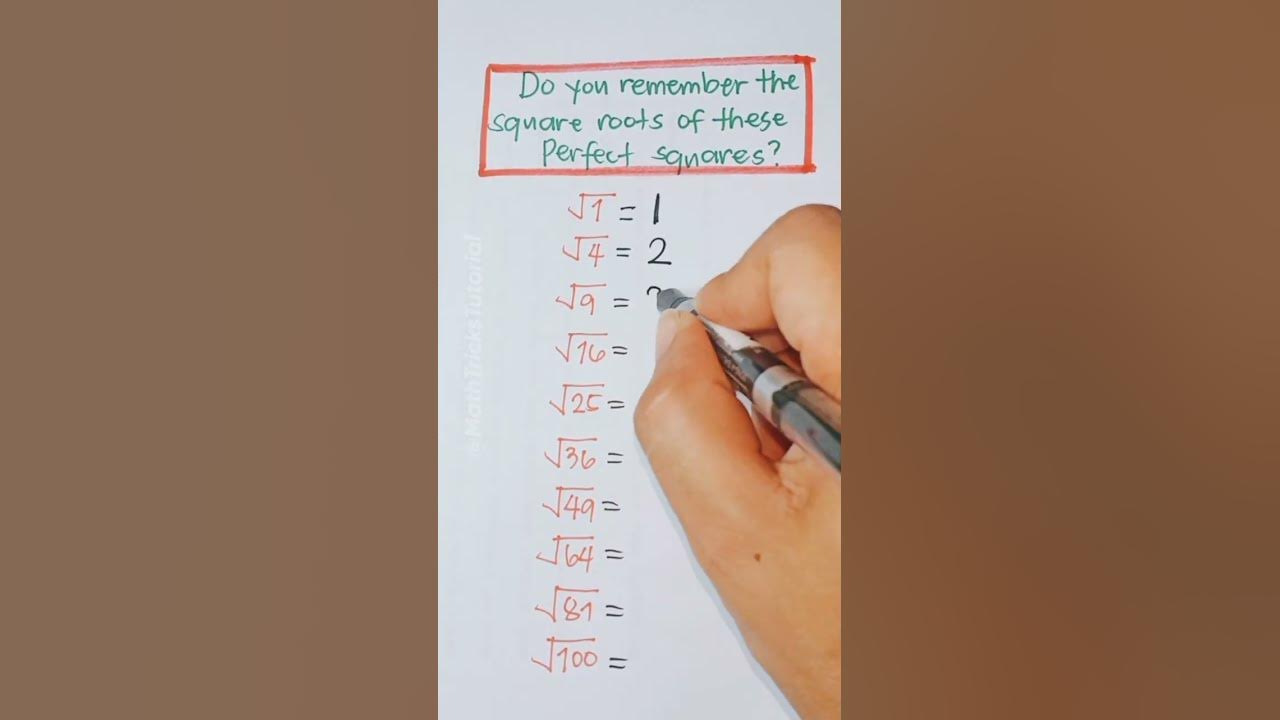 Do you remember the
square roots of these
Perfect squares?
√1 = 1
√4 = 2
√9 =
√16 =
√25 =
√36 =
√49 =
√64 =
√81 =
√100 =
@MathTricksTutorial